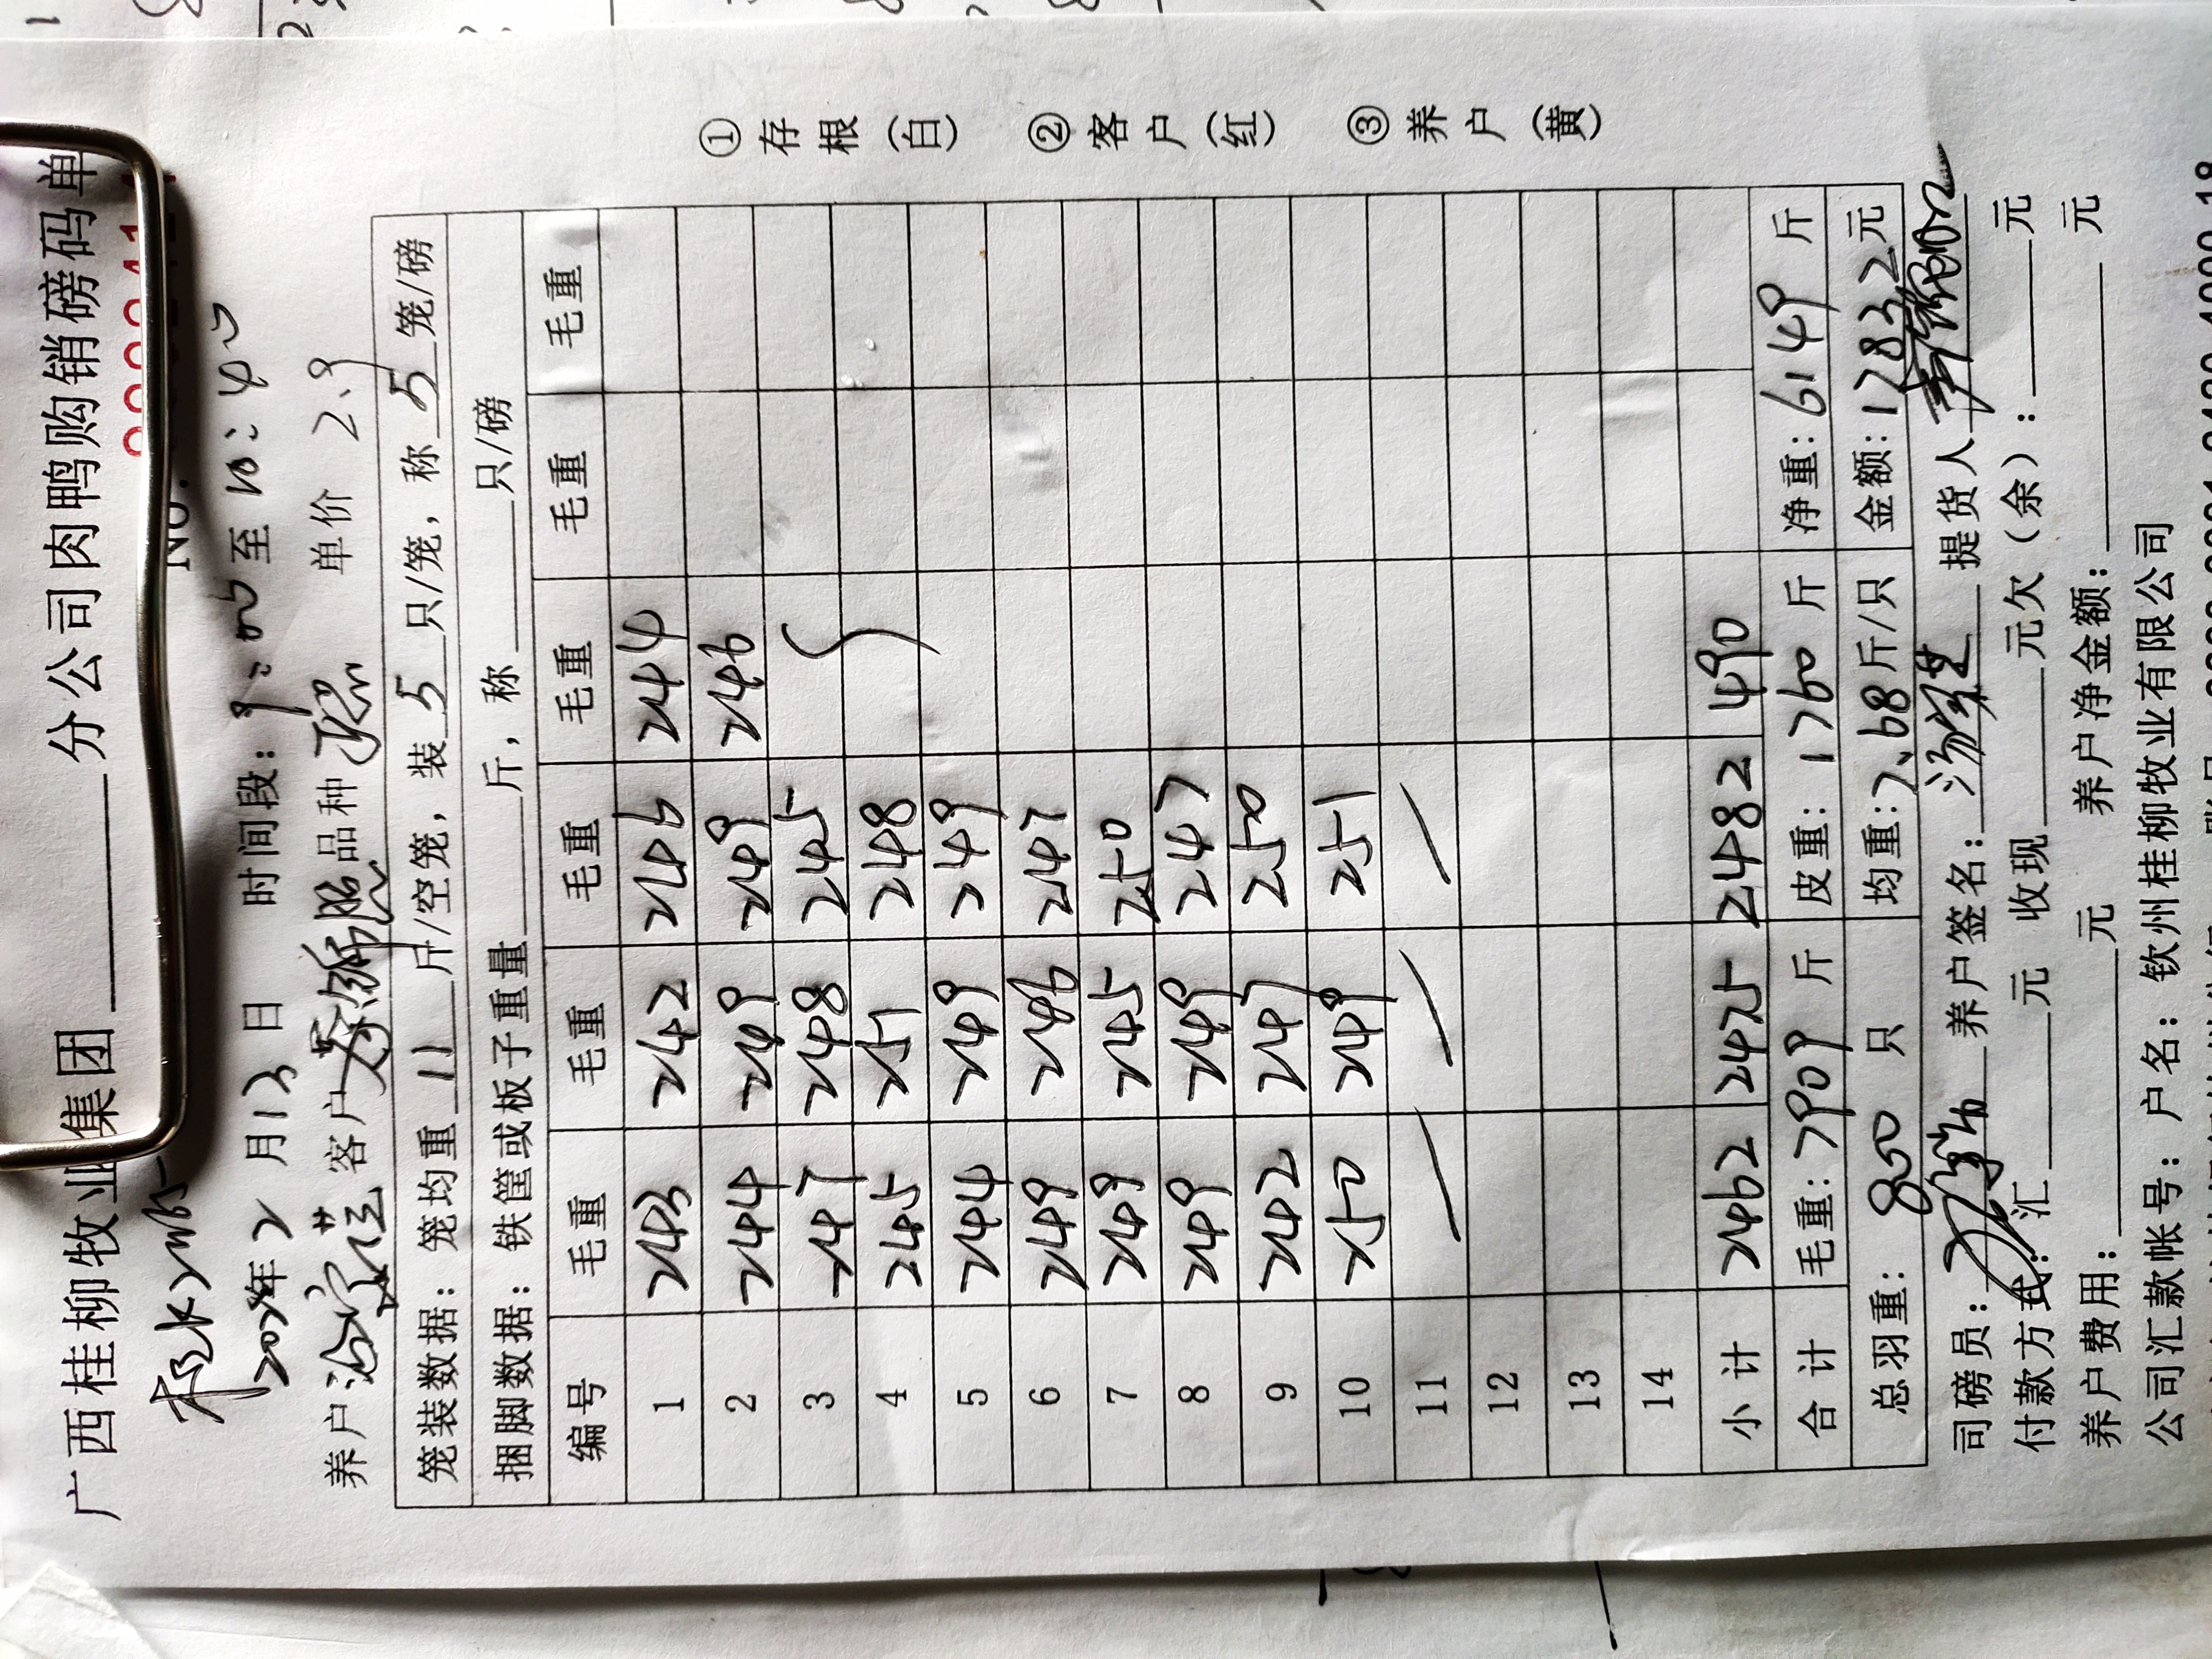 广西桂柳牧业集团 分公司肉鸭购销磅码单
No.
年2月13日 时间段:9:00至10:40
养户 客户 品种 单价 2.9
笼装数据:笼均重 11 斤/空笼,装 5 只/笼,称 5 笼/磅
捆脚数据:铁筐或板子重量 斤,称 只/磅
编号 毛重 毛重 毛重 毛重 毛重 毛重
1 243 242 246 244
2 244 249 249 246
3 247 248 245
4 245 251 248
5 244 249 249
6 249 246 247
7 249 245 250
8 249 249 247
9 242 247 250
10 250 249 251
11
12
13
14
小计 2462 2475 2482 490
合计 毛重:7909 斤 皮重:1760 斤 净重:6149 斤
总羽重:800 只 均重:7.68斤/只 金额:17832元
司磅员: 养户签名: 提货人
付款方式:汇 元 收现 元欠(余): 元
养户费用: 元 养户净金额: 元
公司汇款帐号:户名:钦州桂柳牧业有限公司
①存根(白) ②客户(红) ③养户(黄)